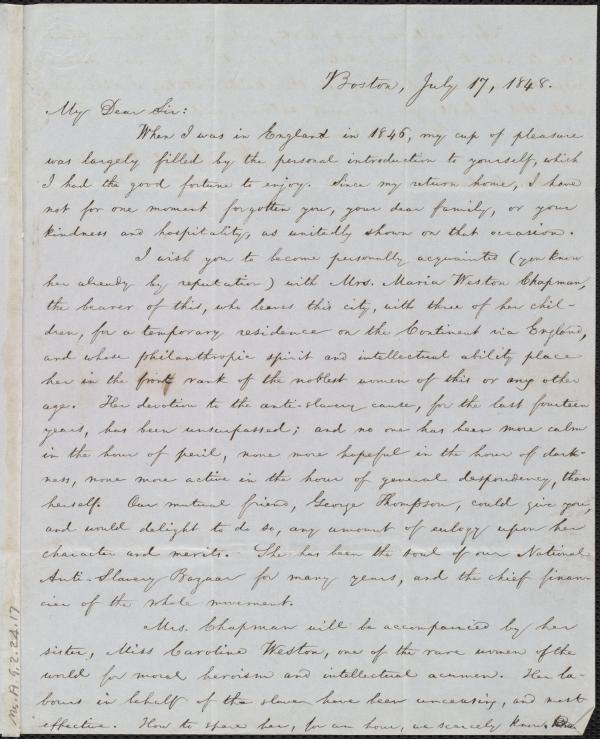 Boston, July 17, 1848.
My Dear Sir:
When I was in England in 1846, my cup of pleasure
was largely filled by the personal introduction to yourself, which
I had the good fortune to enjoy. Since my return home, I have
not for one moment forgotten you, your dear family, or your
kindness and hospitality, as unitedly shown on that occasion.
I wish you to become personally acquainted (you know
her already by reputation) with Mrs. Maria Weston Chapman,
the bearer of this, who leaves this city, with three of her chil-
dren, for a temporary residence on the Continent via England,
and whose philanthropic spirit and intellectual ability place
her in the front rank of the noblest women of this or any other
age. Her devotion to the anti-slavery cause, for the last fourteen
years, has been unsurpassed; and no one has been more calm
in the hour of peril, none more hopeful in the hour of dark-
ness, none more active in the hour of general despondency, than
herself. Our mutual friend, George Thompson, could give you,
and would delight to do so, any amount of eulogy upon her
character and merits. She has been the soul of our National
Anti-Slavery Bazaar for many years, and the chief finan-
cier of the whole movement.
Mrs. Chapman will be accompanied by her
sister, Miss Caroline Weston, one of the rare women of the
world for moral heroism and intellectual acumen. Her la-
bours in behalf of the slave have been unceasing, and most
effective. How to spare her, for an hour, we scarcely know.
Ms. A. 9.2.24.17